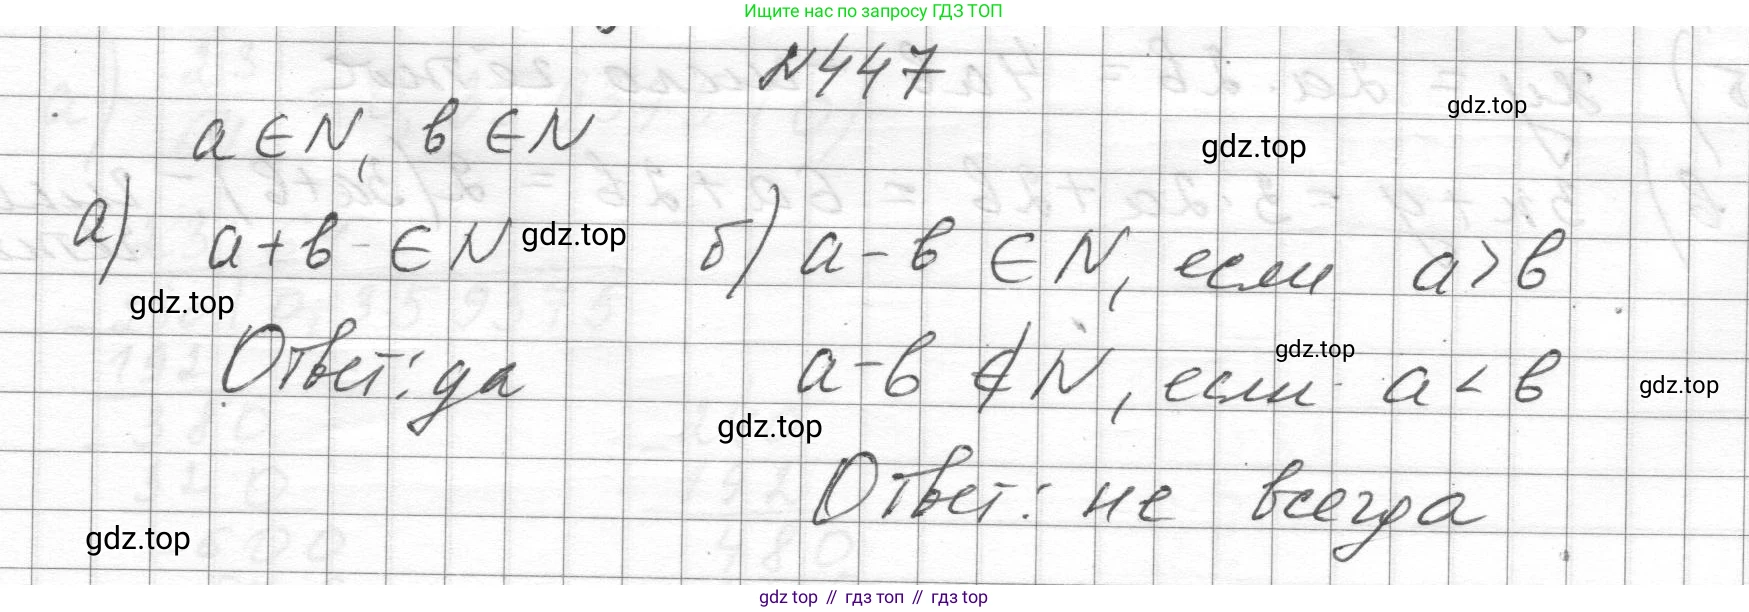 Ищите нас по запросу ГДЗ ТОП
N447
gdz.top
a ∈ N, b ∈ N
gdz.top
а) a + b ∈ N
gdz.top
б) a - b ∈ N, если a > b
gdz.top
Ответ: да
a - b ∉ N, если a < b
gdz.top
gdz.top
gdz.top
Ответ: не всегда
gdz.top
gdz top // гдз топ // gdz top